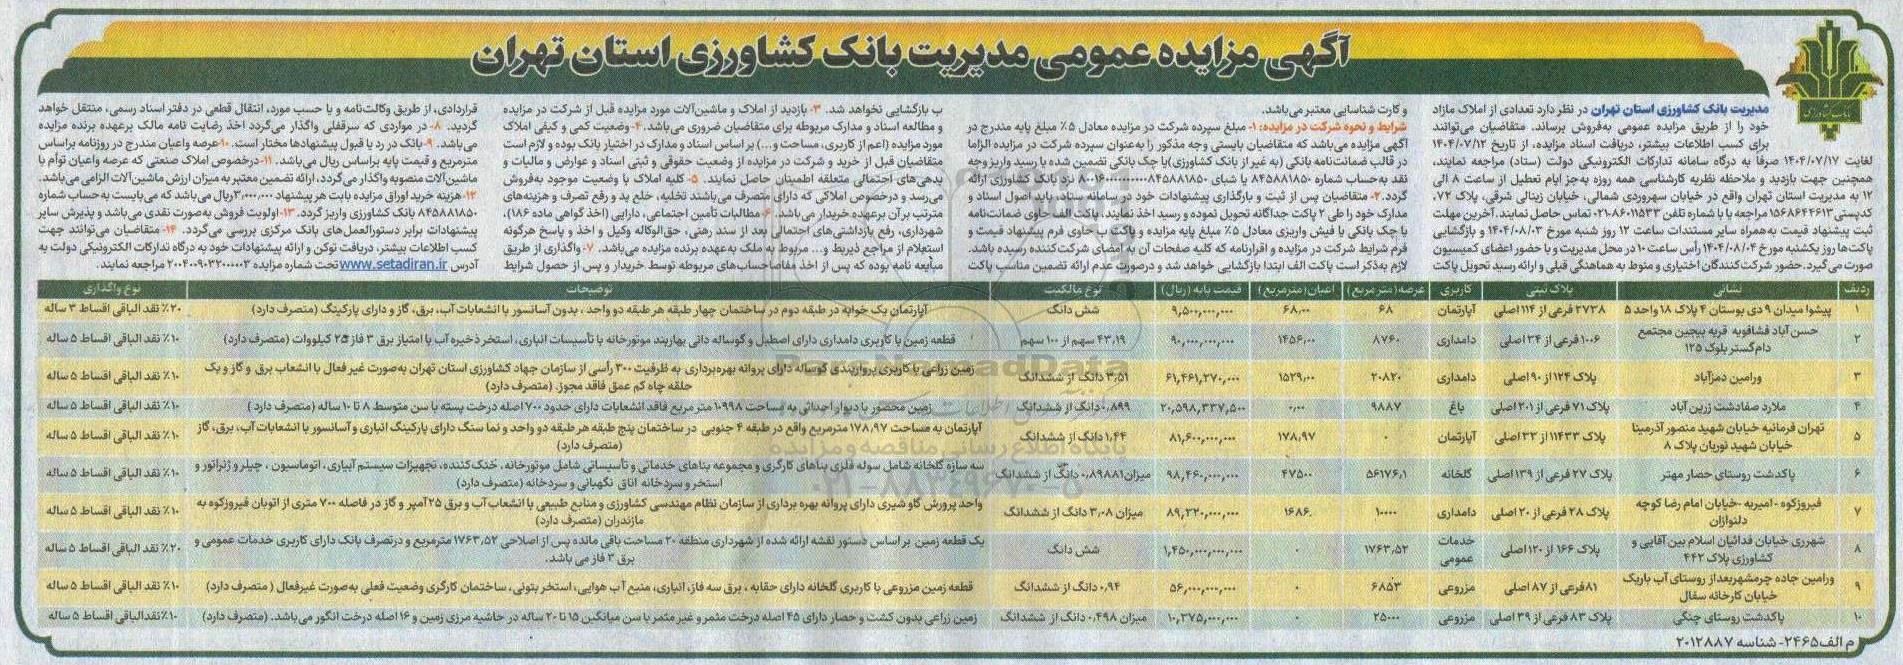 آگهی مزایده عمومی مدیریت بانک کشاورزی استان تهران
بانک کشاورزی
مدیریت بانک کشاورزی استان تهران در نظر دارد تعدادی از املاک مازاد
خود را از طریق مزایده عمومی به‌فروش برساند، متقاضیان می‌توانند
برای کسب اطلاعات بیشتر، دریافت اسناد مزایده، از تاریخ ۱۴۰۴/۰۷/۱۲
لغایت ۱۴۰۴/۰۷/۱۷ صرفا به درگاه سامانه تدارکات الکترونیکی دولت (ستاد) مراجعه نمایند،
همچنین جهت بازدید و ملاحظه نظریه کارشناسی همه روزه به‌جز ایام تعطیل از ساعت ۸ الی
۱۲ به مدیریت استان تهران واقع در خیابان سهروردی شمالی، خیابان زینالی شرقی، پلاک ۷۲،
کدپستی ۱۵۶۸۶۴۴۶۱۳ مراجعه یا با شماره تلفن ۸۶۰۱۱۵۳۳-۰۲۱ تماس حاصل نمایند. آخرین مهلت
ثبت پیشنهاد قیمت به‌همراه سایر مستندات ساعت ۱۲ روز شنبه مورخ ۱۴۰۴/۰۸/۰۳ و بازگشایی
پاکت‌ها روز یکشنبه مورخ ۱۴۰۴/۰۸/۰۴ رأس ساعت ۱۰ در محل مدیریت و با حضور اعضای کمیسیون
صورت می‌گیرد. حضور شرکت‌کنندگان اختیاری و منوط به هماهنگی قبلی و ارائه رسید تحویل پاکت
و کارت شناسایی معتبر می‌باشد.
شرایط و نحوه شرکت در مزایده: ۱- مبلغ سپرده شرکت در مزایده معادل ۵٪ مبلغ پایه مندرج در
آگهی مزایده می‌باشد که متقاضیان بایستی وجه مذکور را به‌عنوان سپرده شرکت در مزایده الزاما
در قالب ضمانت‌نامه بانکی (به غیر از بانک کشاورزی) یا چک بانکی تضمین شده یا رسید واریز وجه
نقد به‌حساب شماره ۸۴۵۸۸۱۸۵۰ یا شبای نزد بانک کشاورزی ارائه
گردد. ۲- متقاضیان پس از ثبت و بارگذاری پیشنهادات خود در سامانه ستاد باید اصول اسناد و
مدارک خود را طی ۲ پاکت جداگانه تحویل نموده و رسید اخذ نمایند. پاکت الف حاوی ضمانت‌نامه
یا چک بانکی یا فیش واریزی معادل ۵٪ مبلغ پایه مزایده و پاکت ب حاوی فرم پیشنهاد قیمت و
فرم شرایط شرکت در مزایده و اقرارنامه که کلیه صفحات آن به امضای شرکت‌کننده رسیده باشد.
لازم به‌ذکر است پاکت الف ابتدا بازگشایی خواهد شد و درصورت عدم ارائه تضمین مناسب پاکت
ب بازگشایی نخواهد شد. ۳- بازدید از املاک و ماشین‌آلات مورد مزایده قبل از شرکت در مزایده
و مطالعه اسناد و مدارک مربوطه برای متقاضیان ضروری می‌باشد. ۴- وضعیت کمی و کیفی املاک
مورد مزایده (اعم از کاربری، مساحت و...) بر اساس اسناد و مدارک در اختیار بانک بوده و لازم است
متقاضیان قبل از خرید و شرکت در مزایده از وضعیت حقوقی و ثبتی اسناد و عوارض و مالیات و
بدهی‌های احتمالی متعلقه اطمینان حاصل نمایند. ۵- کلیه املاک با وضعیت موجود به‌فروش
می‌رسد و درخصوص املاکی که دارای متصرف می‌باشند تخلیه، خلع ید و رفع تصرف و هزینه‌های
مترتب بر آن برعهده خریدار می‌باشد. ۶- مطالبات تأمین اجتماعی، دارایی (اخذ گواهی ماده ۱۸۶)،
شهرداری، رفع بازداشتی‌های احتمالی بعد از سند رهنی، حق‌الوکاله وکیل و اخذ و پاسخ هرگونه
استعلام از مراجع ذیربط و... مربوط به ملک به‌عهده برنده مزایده می‌باشد. ۷- واگذاری از طریق
مبایعه نامه بوده که پس از اخذ مفاصاحساب‌های مربوطه توسط خریدار و پس از حصول شرایط
قراردادی، از طریق وکالت‌نامه و یا حسب مورد، انتقال قطعی در دفتر اسناد رسمی، منتقل خواهد
گردید. ۸- در مواردی که سرقفلی واگذار می‌گردد اخذ رضایت نامه مالک برعهده برنده مزایده
می‌باشد. ۹- بانک در رد یا قبول پیشنهادها مختار است. ۱۰- عرصه واعیان مندرج در روزنامه براساس
مترمربع و قیمت پایه براساس ریال می‌باشد. ۱۱- درخصوص املاک صنعتی که عرصه واعیان توأم با
ماشین‌آلات منصوبه واگذار می‌گردد، ارائه تضمین معتبر به میزان ارزش ماشین‌آلات الزامی می‌باشد.
۱۲- هزینه خرید اوراق مزایده بابت هر پیشنهاد ۳,۰۰۰,۰۰۰ ریال می‌باشد که می‌بایست به‌حساب شماره
۸۴۵۸۸۱۸۵۰ بانک کشاورزی واریز گردد. ۱۳- اولویت فروش به‌صورت نقدی می‌باشد و پذیرش سایر
پیشنهادات برابر دستورالعمل‌های بانک مرکزی بررسی می‌گردد. ۱۴- متقاضیان می‌توانند جهت
کسب اطلاعات بیشتر، دریافت توکن و ارائه پیشنهادات خود به درگاه تدارکات الکترونیکی دولت به
آدرس www.setadiran.ir تحت شماره مزایده ۲۰۰۴۰۰۹۰۳۲۰۰۰۰۰۲ مراجعه نمایند.
ردیف نشانی پلاک ثبتی کاربری عرصه(مترمربع) اعیان(مترمربع) قیمت پایه (ریال) نوع مالکیت توضیحات نوع واگذاری
۱ پیشوا میدان ۹ دی بوستان ۴ پلاک ۱۸ واحد ۵ ۲۷۳۸ فرعی از ۱۱۴ اصلی آپارتمان ۶۸ ۶۸,۰۰ ۹,۵۰۰,۰۰۰,۰۰۰ شش دانگ آپارتمان یک خوابه در طبقه دوم در ساختمان چهار طبقه هر طبقه دو واحد ، بدون آسانسور با انشعابات آب، برق، گاز و دارای پارکینگ (متصرف دارد) ۲۰٪ نقد الباقی اقساط ۳ ساله
۲ حسن آباد فشافویه قریه بیجین مجتمع دام‌گستر بلوک ۱۲۵ ۱۰۰۶ فرعی از ۳۴ اصلی دامداری ۸۷۶۰ ۱۴۵۶,۰۰ ۹۰,۰۰۰,۰۰۰,۰۰۰ ۴۳,۱۹ سهم از ۱۰۰ سهم قطعه زمین با کاربری دامداری دارای اصطبل و گوساله دانی بهاربند موتورخانه با تأسیسات انباری، استخر ذخیره آب با امتیاز برق ۳ فاز ۲۵ کیلووات (متصرف دارد) ۱۰٪ نقد الباقی اقساط ۵ ساله
۳ ورامین دمزآباد پلاک ۱۲۴ از ۹۰ اصلی دامداری ۲۰۸۲۰ ۱۵۲۹,۰۰ ۶۱,۴۶۱,۲۷۰,۰۰۰ ۳,۵۱ دانگ از ششدانگ زمین زراعی با کاربری پرواربندی گوساله دارای پروانه بهره‌برداری به ظرفیت ۳۰۰ رأسی از سازمان جهاد کشاورزی استان تهران به‌صورت غیر فعال با انشعاب برق و گاز و یک حلقه چاه کم عمق فاقد مجوز. (متصرف دارد) ۱۰٪ نقد الباقی اقساط ۵ ساله
۴ ملارد صفادشت زرین آباد پلاک ۷۱ فرعی از ۲۰۱ اصلی باغ ۹۸۸۷ ۰,۰۰ ۲۰,۵۹۸,۳۳۷,۵۰۰ ۰,۸۹۹ دانگ از ششدانگ زمین محصور با دیوار احداثی به مساحت ۱۰۹۹۸ متر مربع فاقد انشعابات دارای حدود ۷۰۰ اصله درخت پسته با سن متوسط ۸ تا ۱۰ ساله (متصرف دارد ) ۱۰٪ نقد الباقی اقساط ۵ ساله
۵ تهران فرمانیه خیابان شهید منصور آذرمینا خیابان شهید نوریان پلاک ۸ پلاک ۱۱۴۳۳ از ۳۲ اصلی آپارتمان ۰ ۱۷۸,۹۷ ۸۱,۶۰۰,۰۰۰,۰۰۰ ۱,۴۴ دانگ از ششدانگ آپارتمان به مساحت ۱۷۸,۹۷ مترمربع واقع در طبقه ۴ جنوبی در ساختمان پنج طبقه هر طبقه دو واحد و نما سنگ دارای پارکینگ انباری و آسانسور با انشعابات آب، برق، گاز (متصرف دارد) ۱۰٪ نقد الباقی اقساط ۵ ساله
۶ پاکدشت روستای حصار مهتر پلاک ۲۷ فرعی از ۱۳۹ اصلی گلخانه ۵۶۱۷۶,۱ ۴۷۵۰۰ ۹۸,۴۶۰,۰۰۰,۰۰۰ میزان ۰,۸۹۸۸۱ دانگ از ششدانگ سه سازه گلخانه شامل سوله فلزی بناهای کارگری و مجموعه بناهای خدماتی و تأسیساتی شامل موتورخانه، خنک‌کننده، تجهیزات سیستم آبیاری، اتوماسیون ، چیلر و ژنراتور و استخر و سردخانه اتاق نگهبانی و سردخانه (متصرف دارد) ۱۰٪ نقد الباقی اقساط ۵ ساله
۷ فیروزکوه - امیریه -خیابان امام رضا کوچه دلنوازان پلاک ۲۸ فرعی از ۲۰ اصلی دامداری ۱۰۰۰۰ ۱۶۸۶ ۸۹,۳۲۰,۰۰۰,۰۰۰ میزان ۳,۰۸ دانگ از ششدانگ واحد پرورش گاو شیری دارای پروانه بهره برداری از سازمان نظام مهندسی کشاورزی و منابع طبیعی با انشعاب آب و برق ۲۵ آمپر و گاز در فاصله ۷۰۰ متری از اتوبان فیروزکوه به مازندران (متصرف دارد) ۱۰٪ نقد الباقی اقساط ۵ ساله
۸ شهرری خیابان فدائیان اسلام بین آقایی و کشاورزی پلاک ۴۴۲ پلاک ۱۶۶ از ۱۲۰ اصلی خدمات عمومی ۱۷۶۳,۵۲ ۰ ۱,۴۵۰,۰۰۰,۰۰۰,۰۰۰ شش دانگ یک قطعه زمین بر اساس دستور نقشه ارائه شده از شهرداری منطقه ۲۰ مساحت باقی مانده پس از اصلاحی ۱۷۶۳,۵۲ مترمربع و درتصرف بانک دارای کاربری خدمات عمومی و برق ۳ فاز می باشد. ۲۰٪ نقد الباقی اقساط ۵ ساله
۹ ورامین جاده چرمشهربعداز روستای آب باریک خیابان کارخانه سفال ۸۱ فرعی از ۸۷ اصلی مزروعی ۶۸۵۳ ۰ ۵۶,۰۰۰,۰۰۰,۰۰۰ ۰,۹۴ دانگ از ششدانگ قطعه زمین مزروعی با کاربری گلخانه دارای حقابه ، برق سه فاز، انباری، منبع آب هوایی، استخر بتونی، ساختمان کارگری وضعیت فعلی به‌صورت غیرفعال ( متصرف دارد) ۱۰٪ نقد الباقی اقساط ۵ ساله
۱۰ پاکدشت روستای چنگی پلاک ۸۳ فرعی از ۳۹ اصلی مزروعی ۲۵۰۰۰ ۰ ۱۰,۳۷۵,۰۰۰,۰۰۰ میزان ۰,۴۹۸ دانگ از ششدانگ زمین زراعی بدون کشت و حصار دارای ۴۵ اصله درخت مثمر و غیر مثمر با سن میانگین ۱۵ تا ۲۰ ساله در حاشیه مرزی زمین و ۱۶ اصله درخت انگور می‌باشد. (متصرف دارد) ۱۰٪ نقدالباقی اقساط ۵ ساله
م الف ۲۴۶۵- شناسه ۲۰۱۲۸۸۷
ParsNamadData
پایگاه اطلاع رسانی مناقصه و مزایده
۰۲۱-۸۸۳۴۹۶۷۰-۵